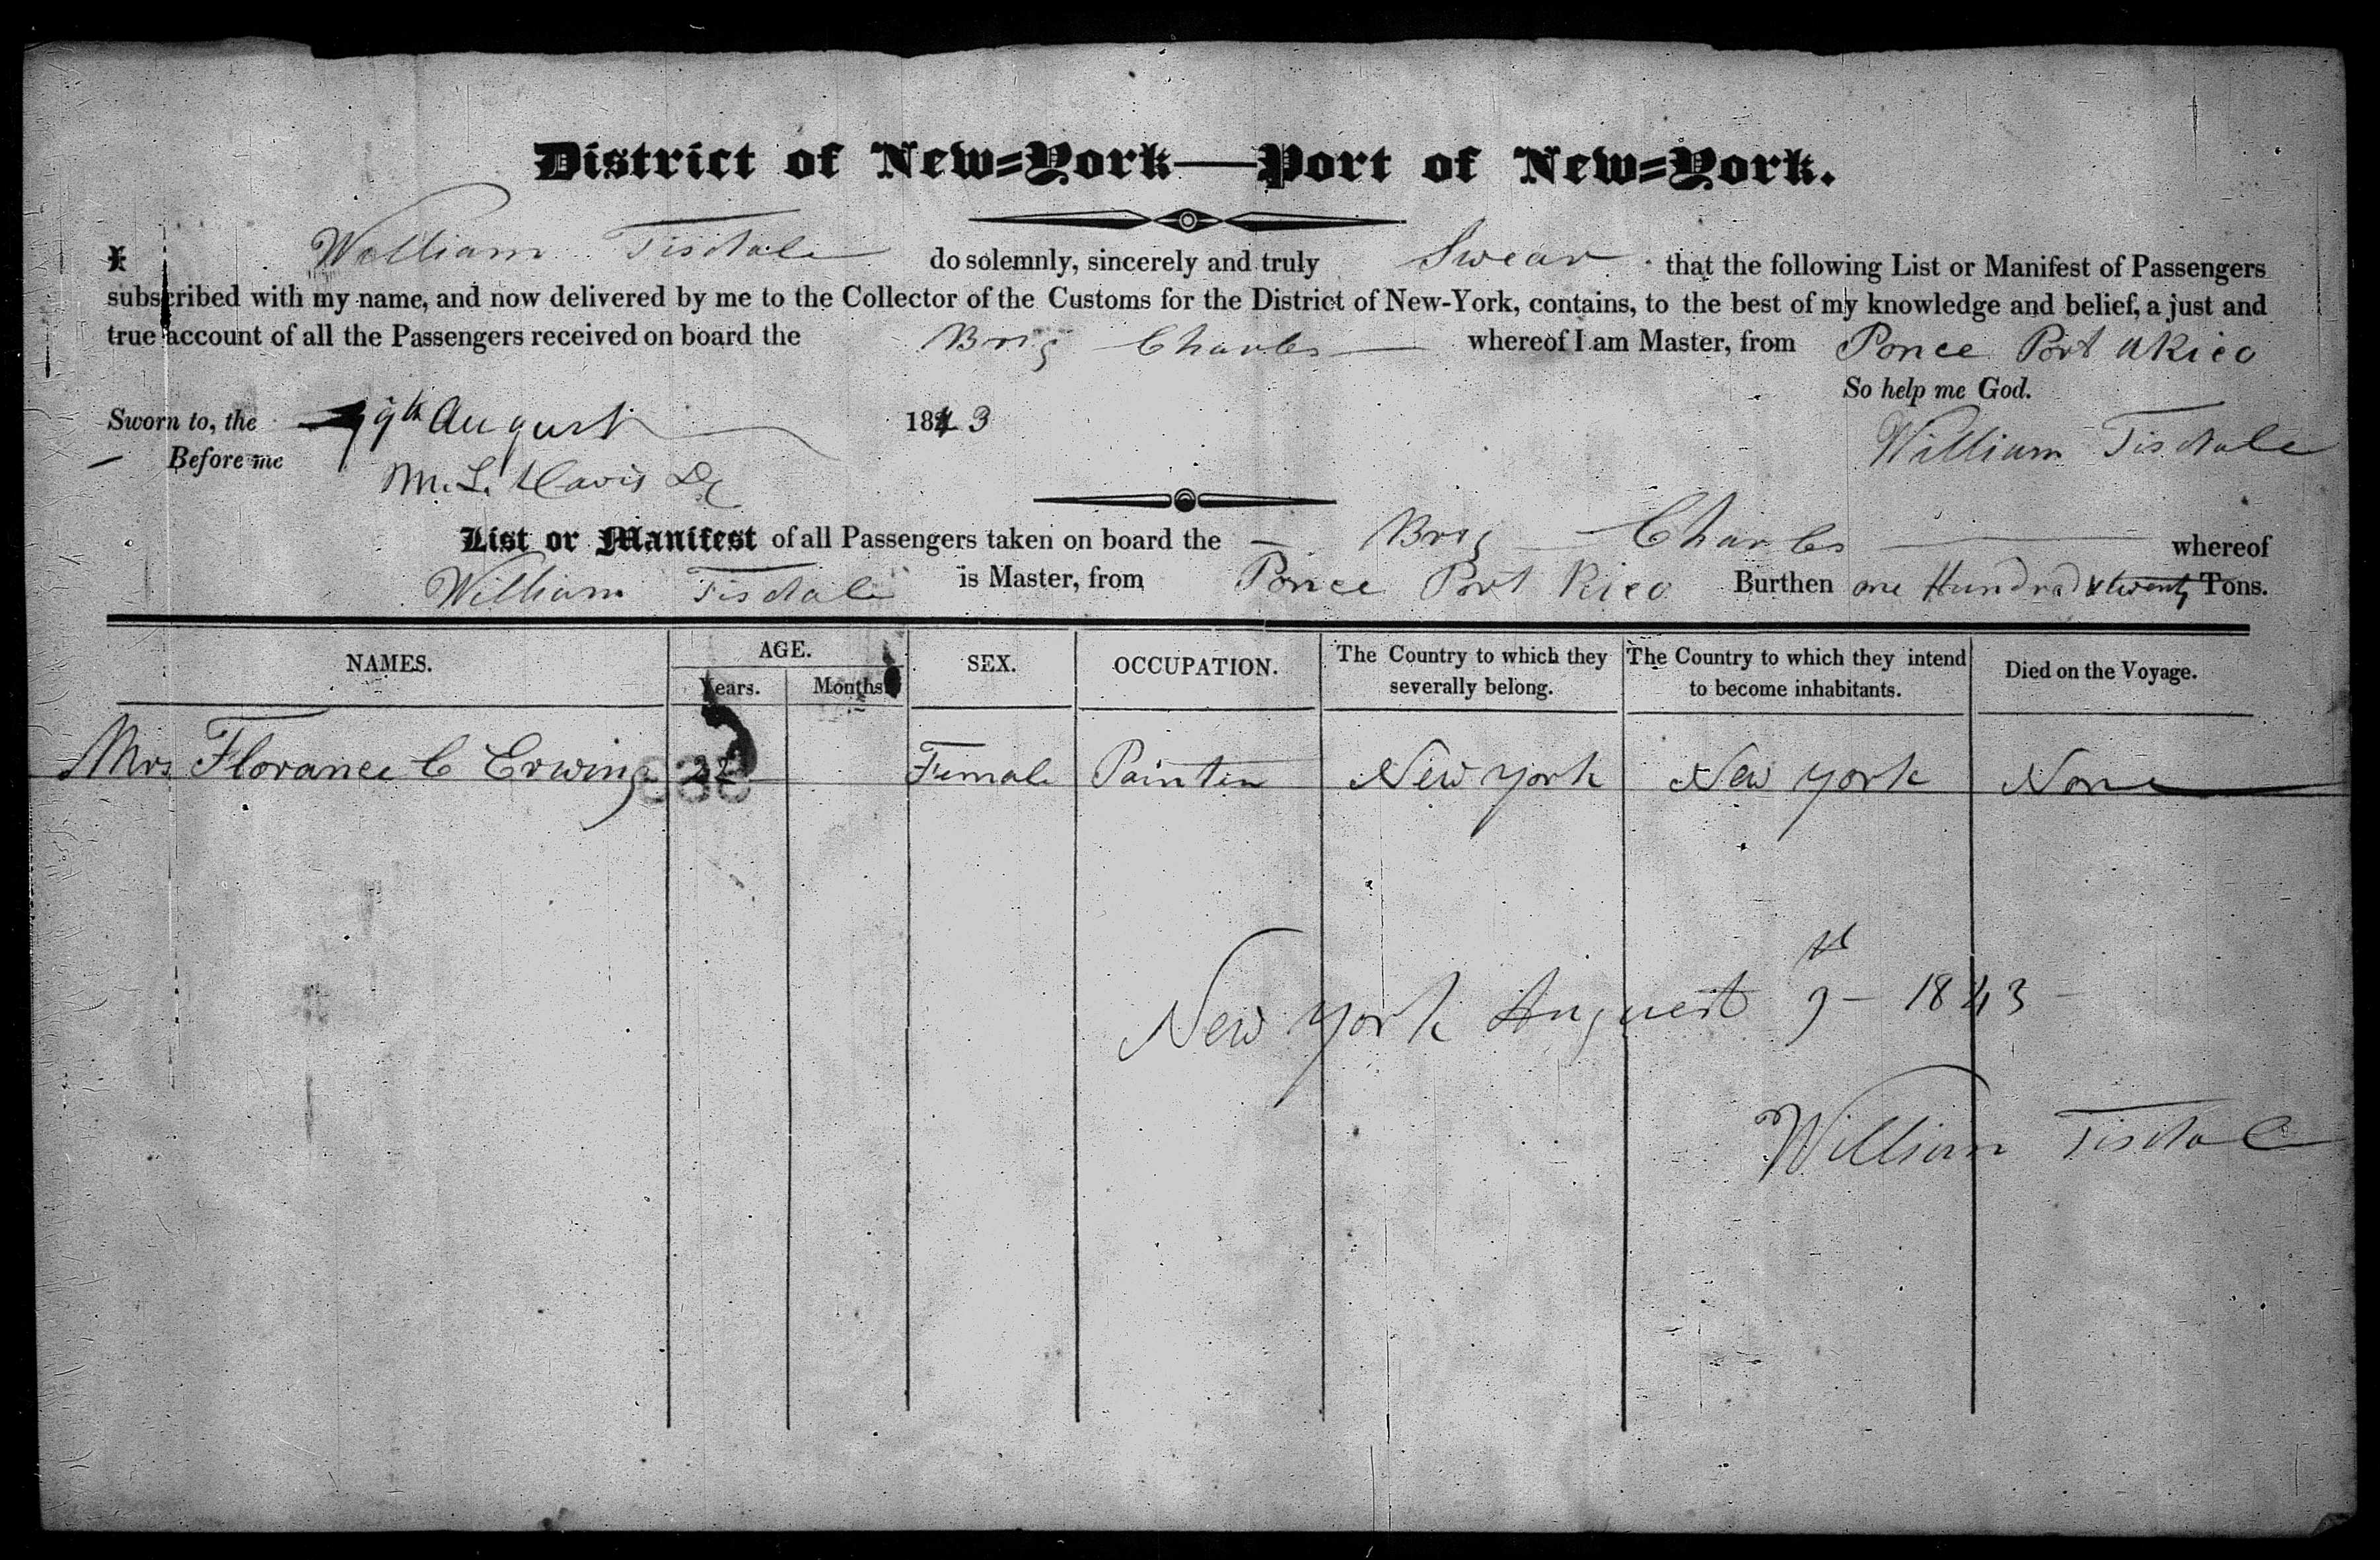 District of New=York—Port of New=York.
I William Tisdale do solemnly, sincerely and truly Swear that the following List or Manifest of Passengers
subscribed with my name, and now delivered by me to the Collector of the Customs for the District of New-York, contains, to the best of my knowledge and belief, a just and
true account of all the Passengers received on board the Brig Charles whereof I am Master, from Ponce Port Rico
So help me God.
Sworn to, the 9th August 1843
William Tisdale
Before me
M. L. Davis
List or Manifest of all Passengers taken on board the Brig Charles whereof
William Tisdale is Master, from Ponce Port Rico Burthen one Hundred & twenty Tons.
NAMES. AGE. Years. Months SEX. OCCUPATION. The Country to which they severally belong. The Country to which they intend to become inhabitants. Died on the Voyage.
Mrs Florance C Erwing 22 Female Painter New York New York None
New York August 9th 1843
William Tisdale